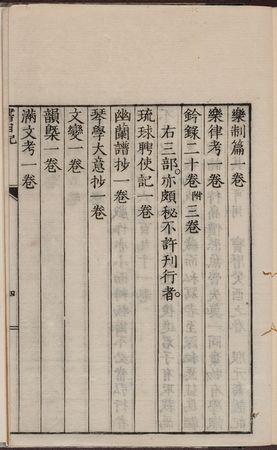 樂制篇一卷
樂律考一卷
鈐錄二十卷附三卷
右三部。亦頗秘不許刊行者。
琉球聘使記一卷
幽蘭譜抄一卷
琴學大意抄一卷
文變一卷
韻槩一卷
滿文考一卷
四